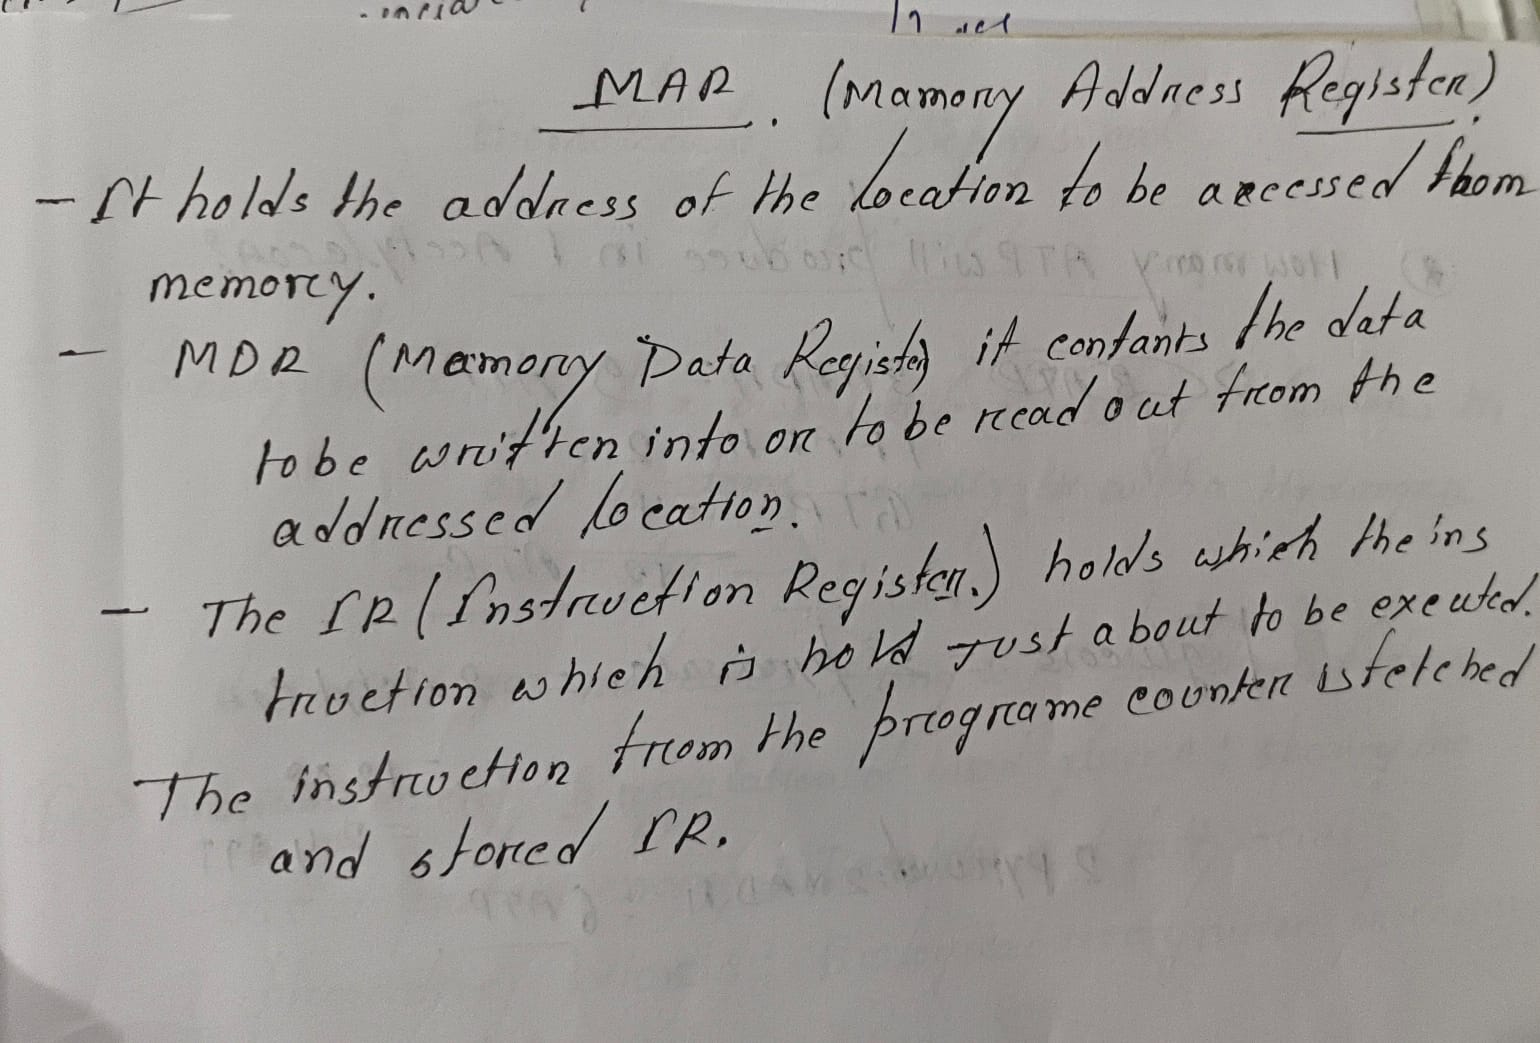 MAR. (Mamory Address Register)
- It holds the address of the location to be accessed from
memory.
- MDR (Mamory Data Register) it contants the data
to be written into or to be read out from the
addressed location.
- The IR (Instruction Register.) holds which the ins
truction which is hold Just about to be exeuted.
The instruction from the programe counter is fetched
and stored IR.